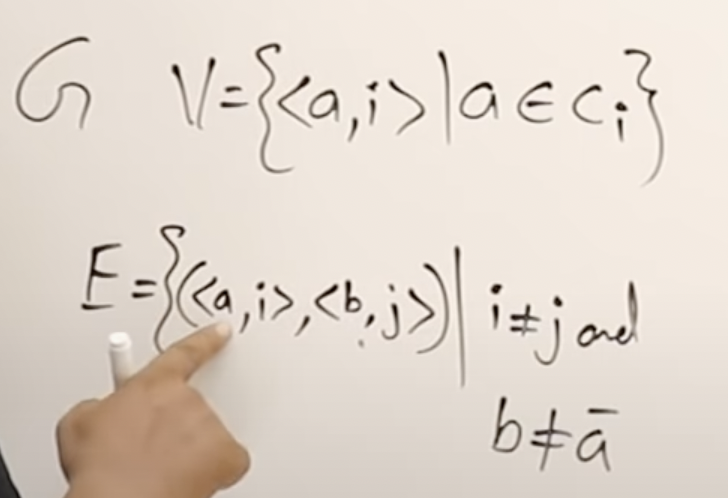 G V={<a,i>|a∈Ci}
E={(<a,i>,<b,j>)| i≠j and
b≠ā